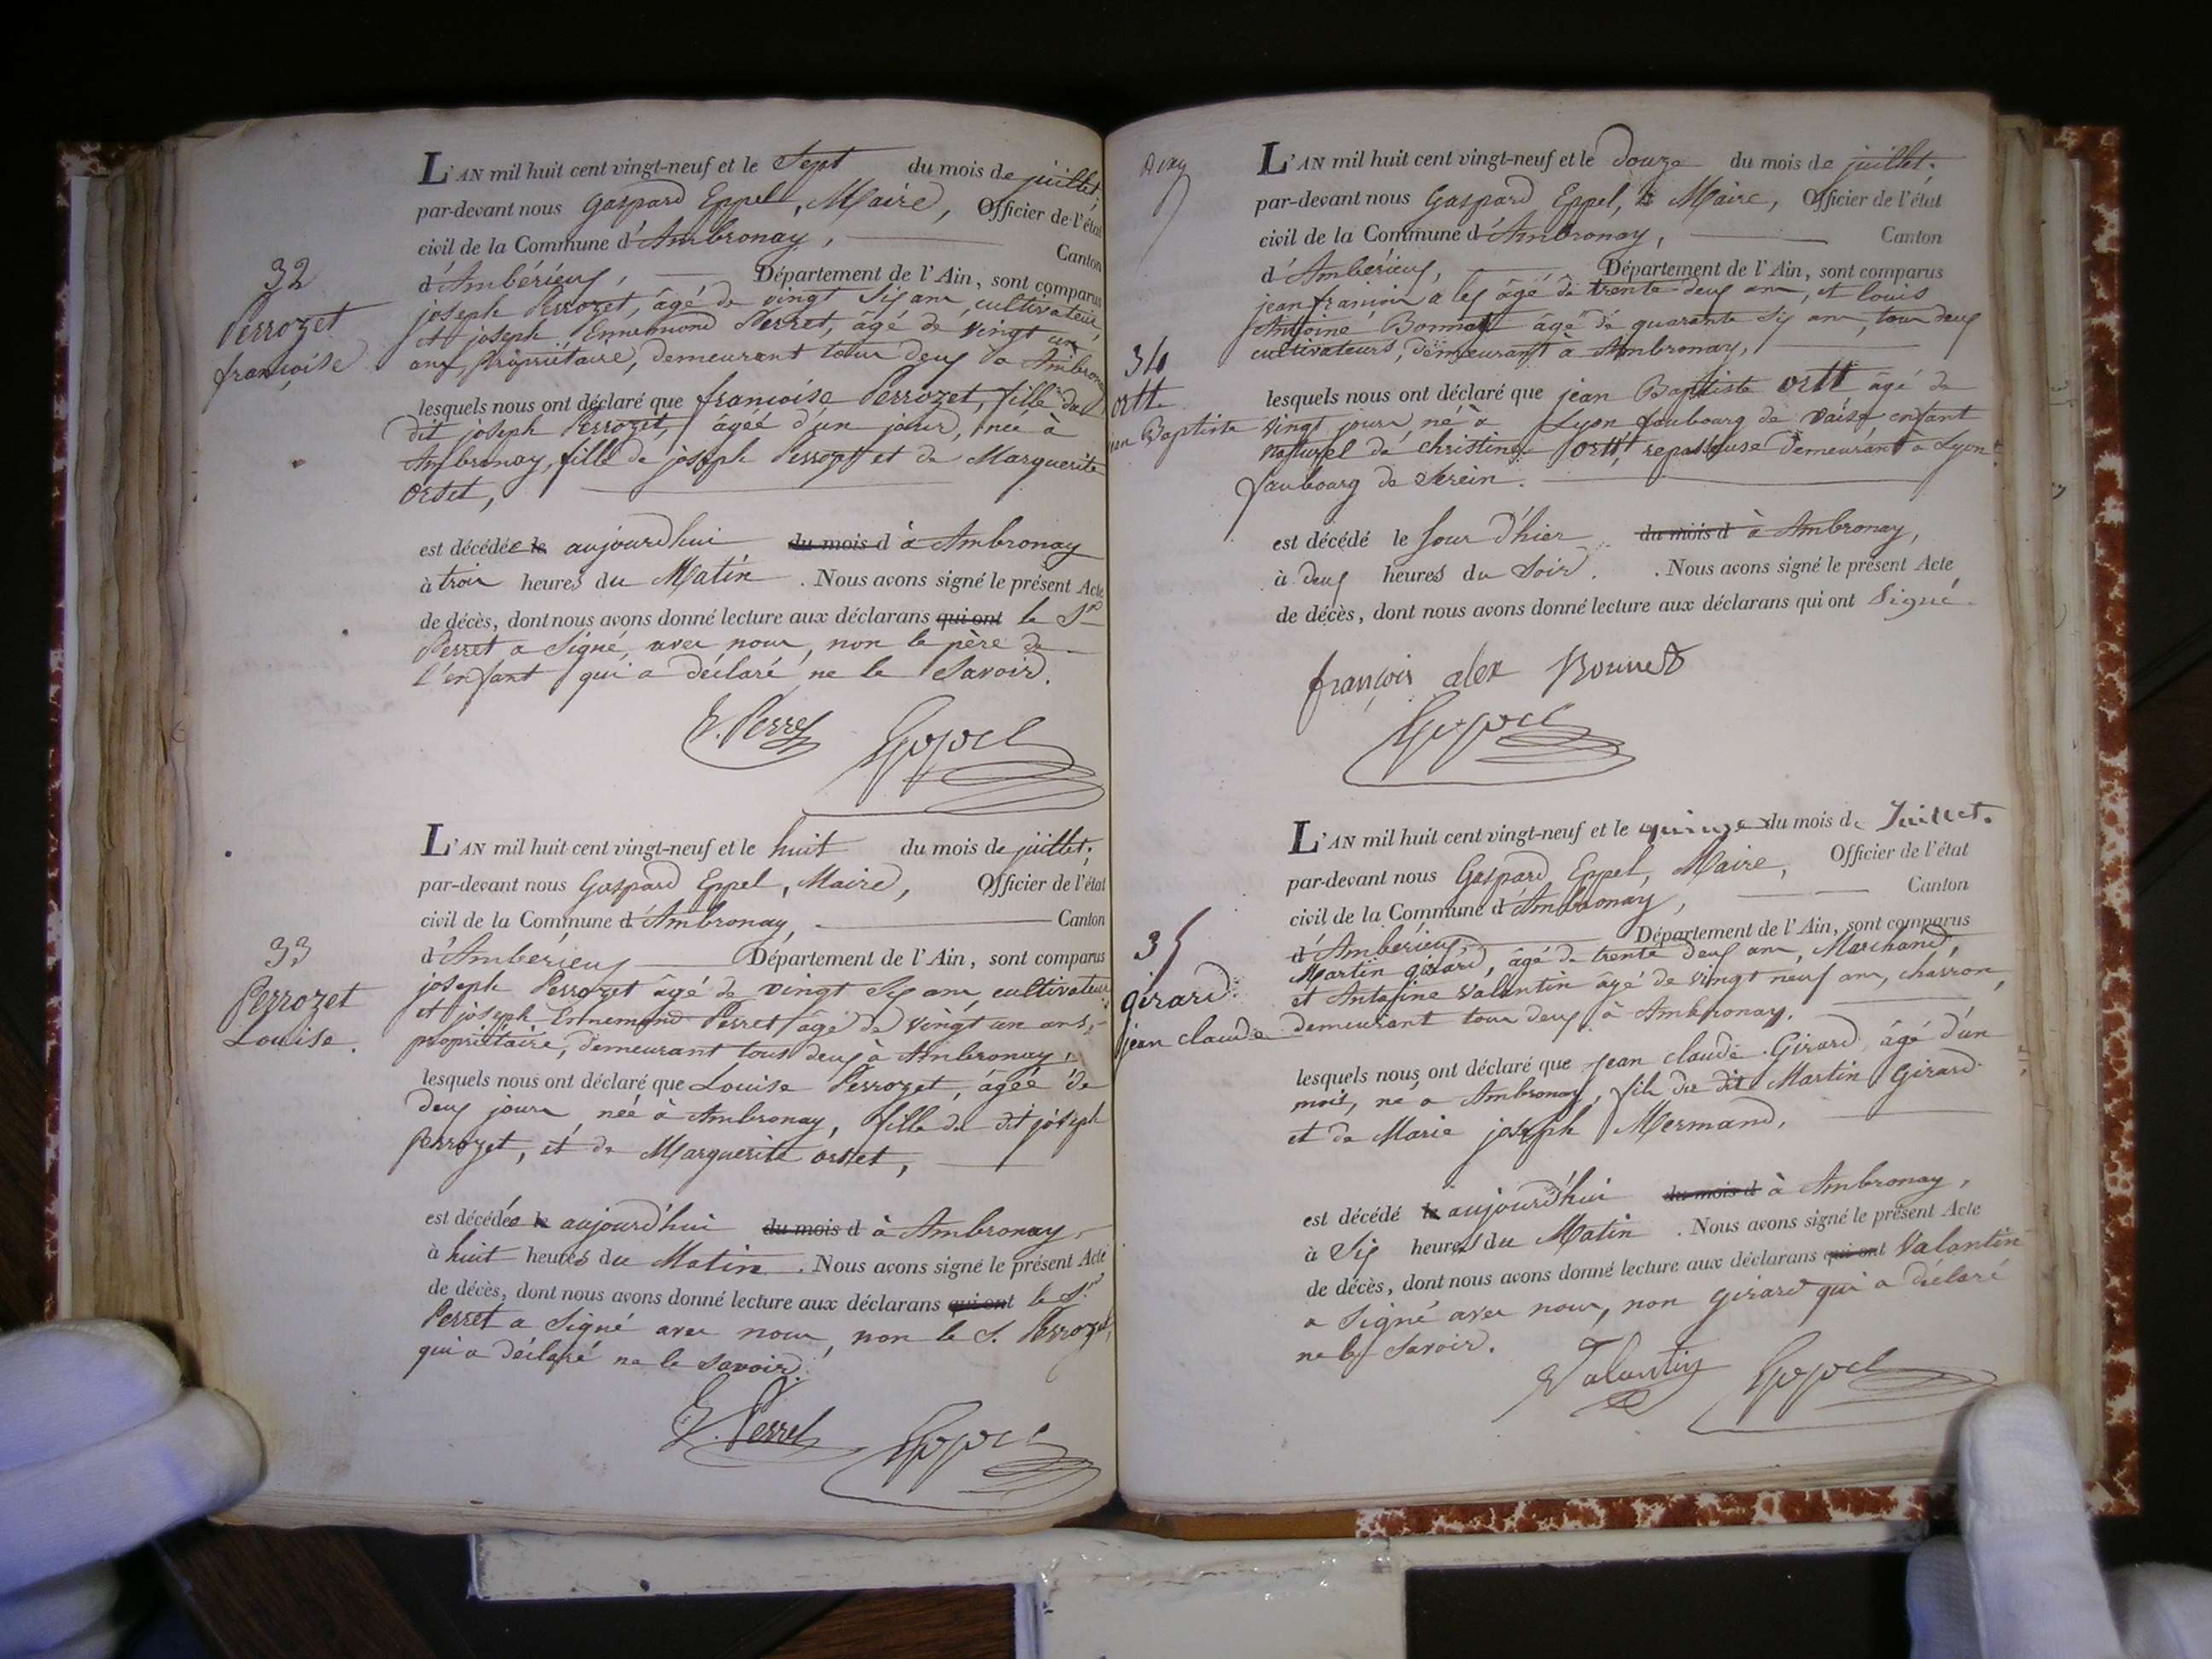 L'AN mil huit cent vingt-neuf et le Sept du mois de juillet,
par-devant nous Gaspard Eppel, Maire, Officier de l'état
civil de la Commune d'Ambronay, Canton
d'Ambérieux, Département de l'Ain, sont comparus
joseph Perrozet, âgé de vingt Six ans, cultivateur,
et joseph Ennemond Perret, âgé de vingt un
ans, Propriétaire, demeurant tous deux à Ambronay
32
Perrozet
françoise
lesquels nous ont déclaré que françoise Perrozet, fille du
dit joseph Perrozet, âgéé d'un jour, née à
Ambronay, fille de joseph Perrozet et de Marguerite
Ordet,
est décédée le aujourd'hui du mois d à Ambronay
à trois heures du Matin. Nous avons signé le présent Acte
de décès, dont nous avons donné lecture aux déclarans qui ont le Sr
Perret a Signé, avec nous, non le père de
l'enfant qui a déclaré ne le Savoir.
E. Perret Eppel
L'AN mil huit cent vingt-neuf et le huit du mois de juillet,
par-devant nous Gaspard Eppel, Maire, Officier de l'état
civil de la Commune d'Ambronay, Canton
d'Ambérieux Département de l'Ain, sont comparus
joseph Perrozet âgé de vingt Six ans, cultivateur
et joseph Ennemond Perret âgé de vingt un ans,
propriétaire, demeurant tous deux à Ambronay,
33
Perrozet
Louise.
lesquels nous ont déclaré que Louise Perrozet, âgéé de
deux jours, néé à Ambronay, fille du dit joseph
Perrozet, et de Marguerite
est décédée le aujourd'hui du mois d à Ambronay,
à huit heures du Matin. Nous avons signé le présent Acte
de décès, dont nous avons donné lecture aux déclarans qui ont le Sr
Perret a Signé avec nous, non le S. Perrozet,
qui a déclaré ne le Savoir.
E. Perret Eppel
L'AN mil huit cent vingt-neuf et le douze du mois de juillet.
par-devant nous Gaspard Eppel, Maire, Officier de l'état
civil de la Commune d'Ambronay, Canton
d'Ambérieux, Département de l'Ain, sont comparus
jean françois alex âgé de trente deux ans, et louis
Antoine Bonnet âgé de quarante Six ans, tous deux
cultivateurs, demeurant à Ambronay,
34
ortt
jean Baptiste
lesquels nous ont déclaré que jean Baptiste ortt âgé de
vingt jours, né à Lyon faubourg de Vaise, enfant
naturel de christine ortt, repasseuse demeurant à Lyon
faubourg de Serein.
est décédé le jour d'hier du mois d à Ambronay,
à deux heures du Soir. Nous avons signé le présent Acte
de décès, dont nous avons donné lecture aux déclarans qui ont Signé.
françois alex Bonnet
Eppel
L'AN mil huit cent vingt-neuf et le quinze du mois de Juillet.
par-devant nous Gaspard Eppel, Maire, Officier de l'état
civil de la Commune d'Ambronay, Canton
d'Ambérieux, Département de l'Ain, sont comparus
Martin girard, âgé de trente deux ans, Marchand,
et Antoine Valentin âgé de vingt neuf ans, charron,
demeurant tous deux à Ambronay.
35
girard
jean claude
lesquels nous ont déclaré que Jean claude Girard âgé d'un
mois, né à Ambronay, fils du dit Martin Girard
et de Marie joseph Mermand,
est décédé le aujourd'hui du mois d à Ambronay,
à Six heures du Matin. Nous avons signé le présent Acte
de décès, dont nous avons donné lecture aux déclarans qui ont Valantin
a Signé avec nous, non girard qui a déclaré
ne le Savoir.
Valantin Eppel